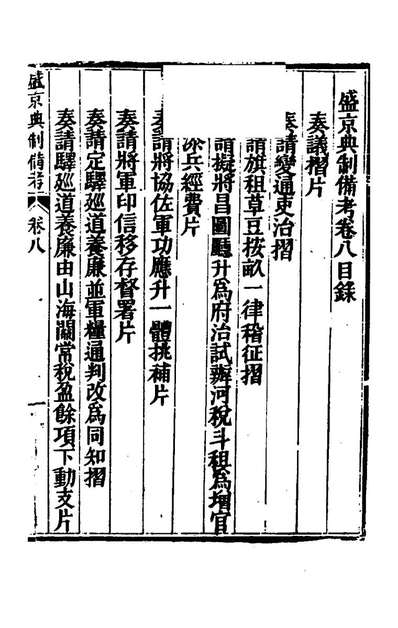 盛京典制備考卷八目錄
奏議摺片
奏請變通吏治摺
請旗租草豆按畝一律稽征摺
請擬將昌圖廳升爲府治試辦河稅斗租爲增官
添兵經費片
奏請將協佐軍功應升一體挑補片
奏請將軍印信移存督署片
奏請定驛廵道養廉並軍糧通判改爲同知摺
奏請驛廵道養廉由山海關常稅盈餘項下動支片
盛京典制備考 卷八 一